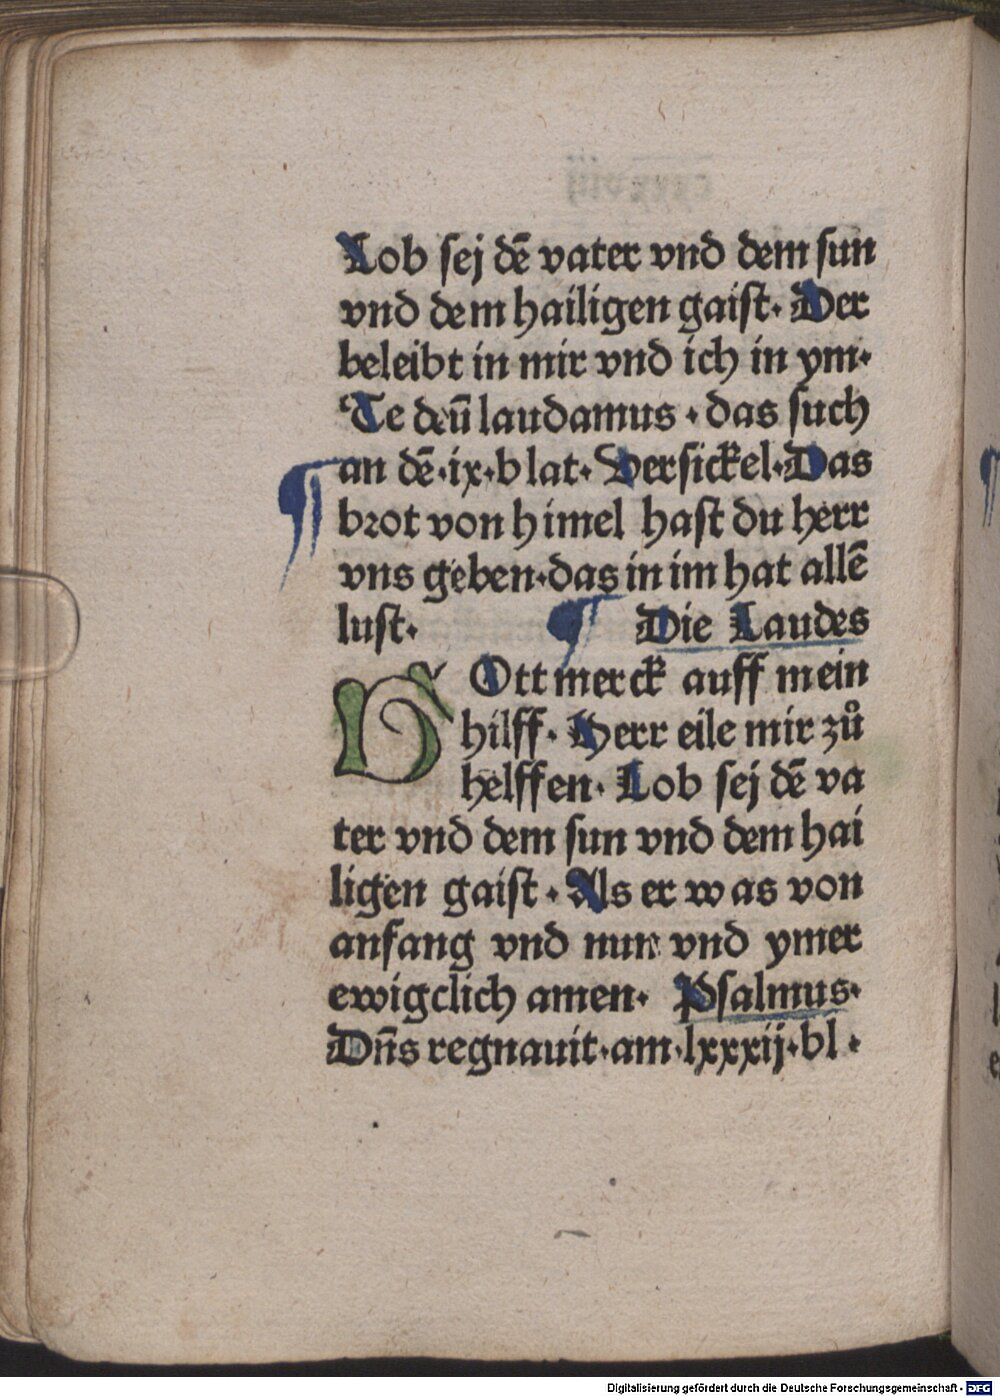 Lob sej dē vater vnd dem sun
vnd dem hailigen gaist. Der
beleibt in mir vnd ich in ym.
Te deū laudamus. das such
an dē.ix.blat. Versickel. Das
brot von himel hast du herr
vns geben. das in im hat allē
lust. ¶ Die Laudes
GOtt merck auff mein
hilff. Herr eile mir zů
helffen. Lob sej dē va
ter vnd dem sun vnd dem hai
ligen gaist. Als er was von
anfang vnd nun vnd ymer
ewigclich amen. Psalmus.
Dn̄s regnauit.am.lxxxij.bl.
Digitalisierung gefördert durch die Deutsche Forschungsgemeinschaft - DFG